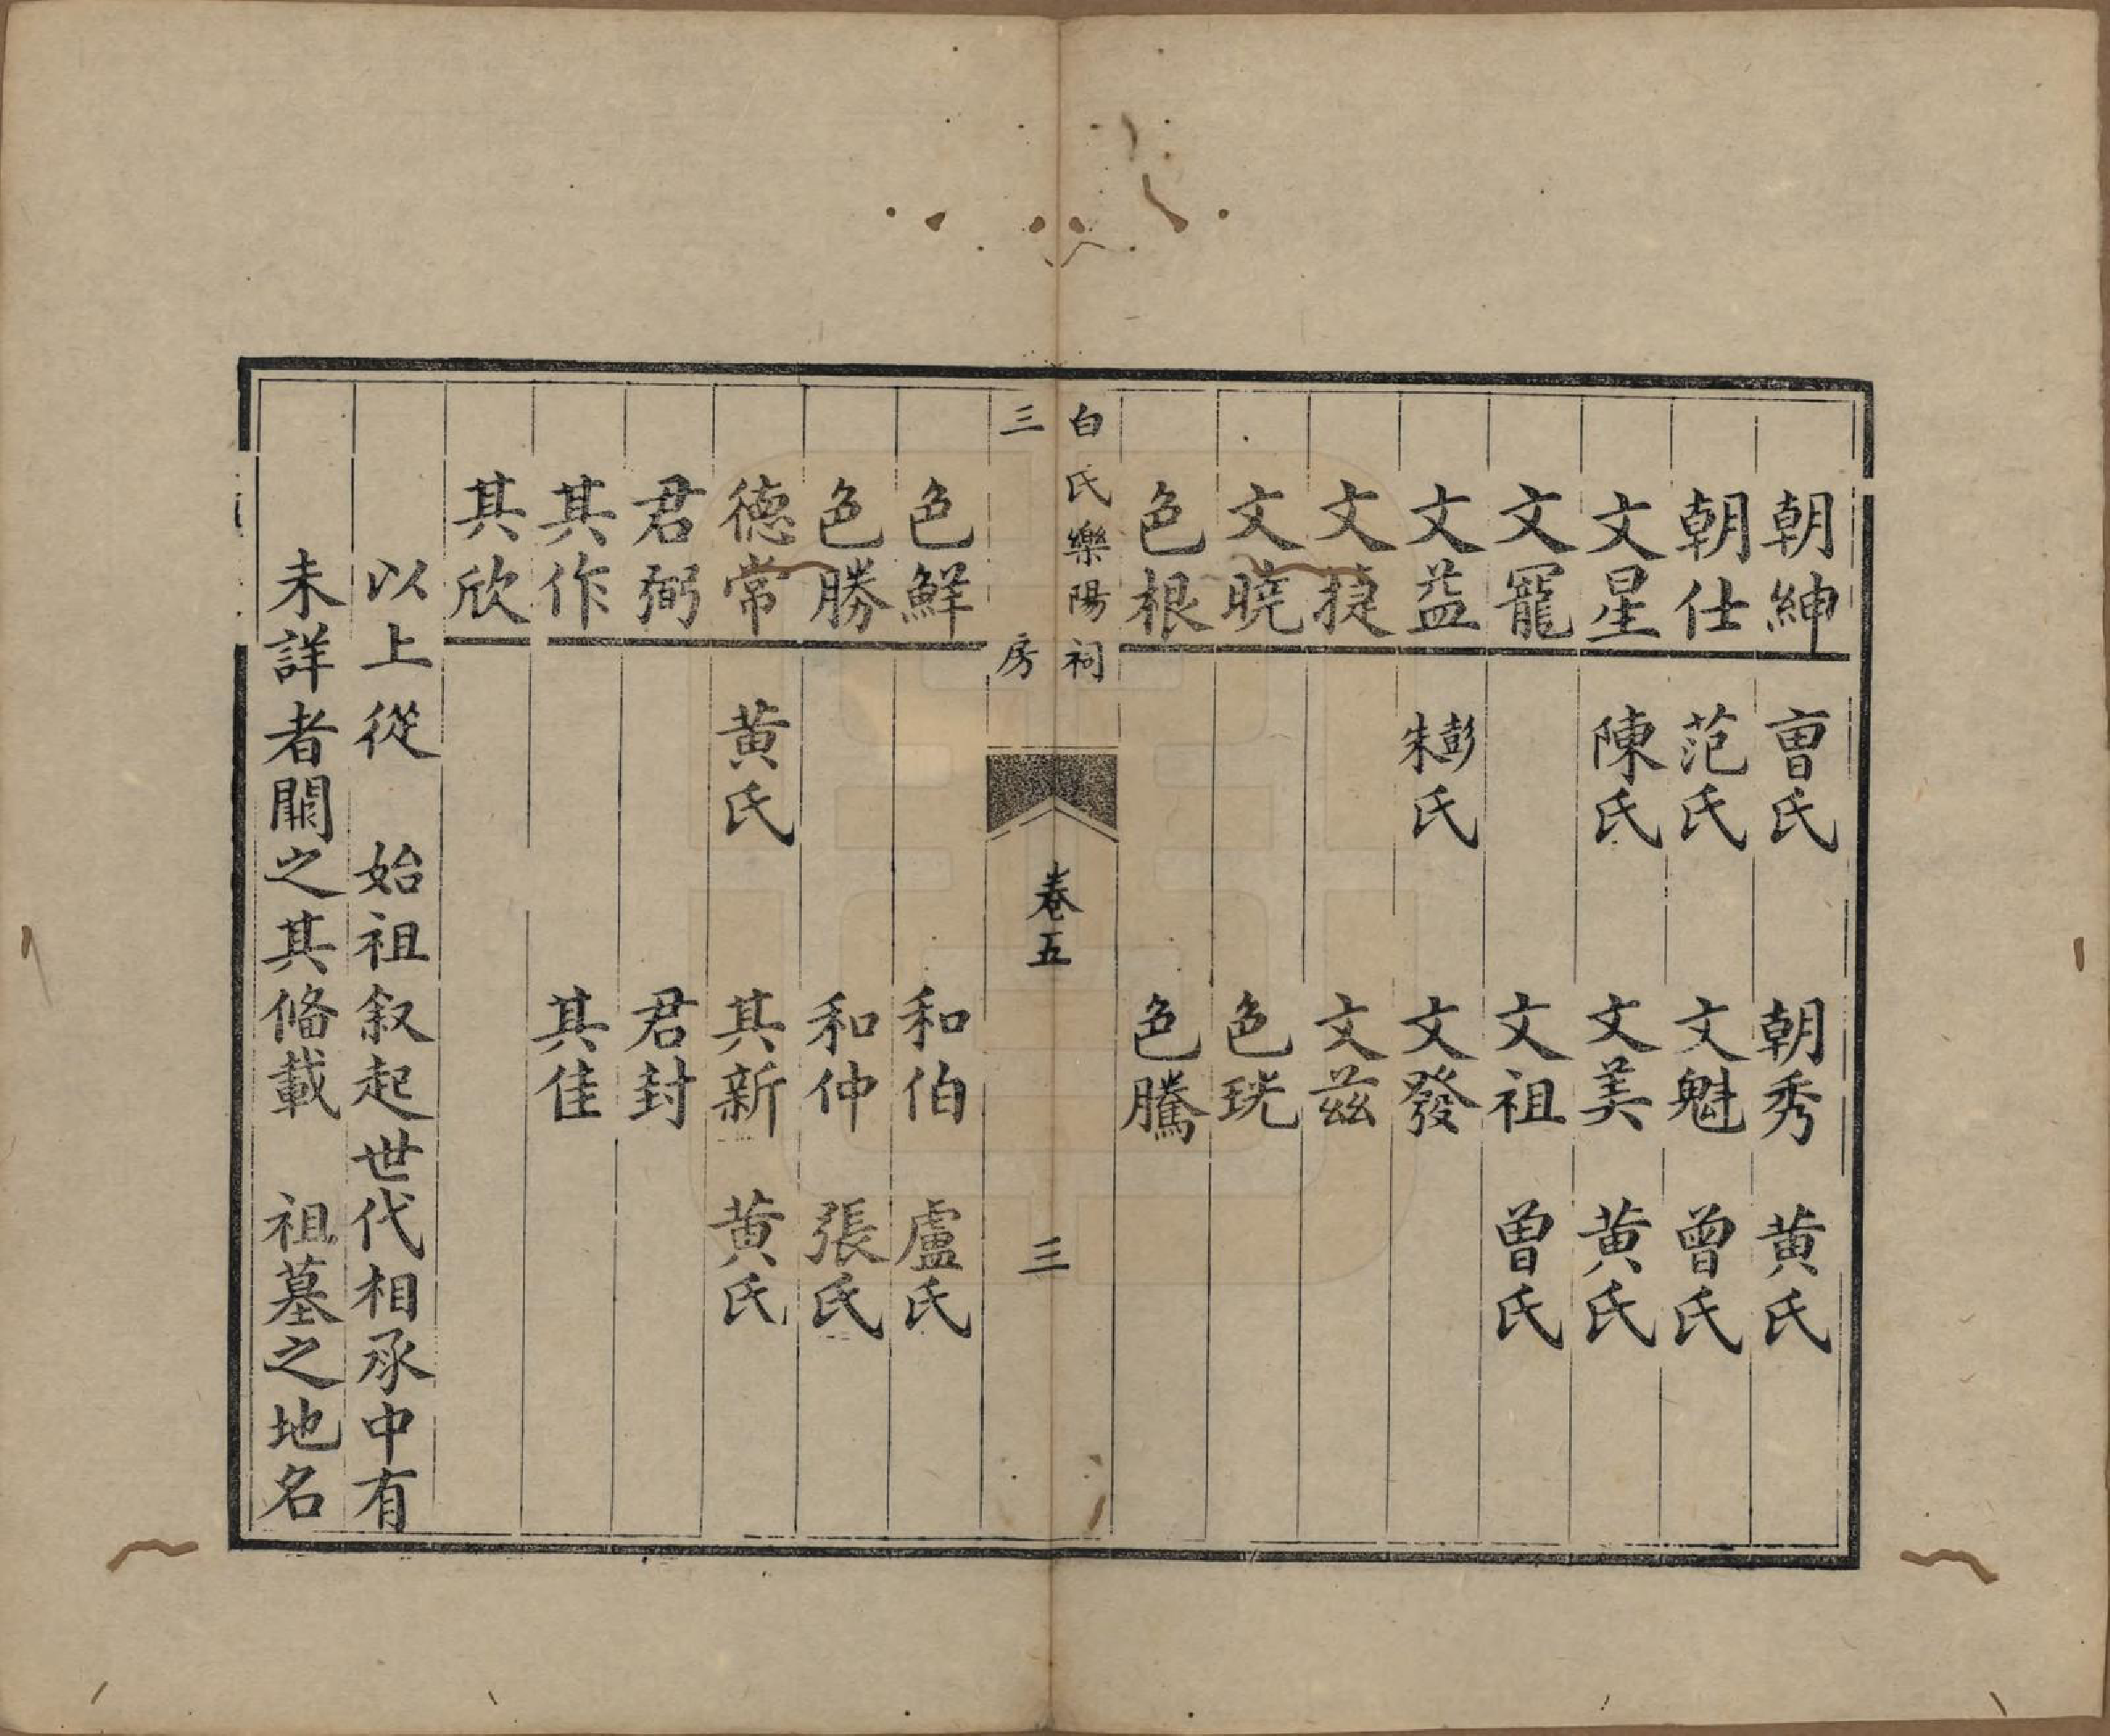 朝紳 曺氏 朝秀 黄氏
朝仕 范氏 文魁 曾氏
文星 陳氏 文美 黄氏
文寵 文祖 曾氏
文益 彭朱氏 文發
文捷 文兹
文曉 色珖
色根 色騰
白氏樂陽祠
三房
卷五
三
色鮮 和伯 盧氏
色勝 和仲 張氏
德常 黄氏 其新 黄氏
君弼 君封
其作 其佳
其欣
以上從 始祖叙起世代相承中有
未詳者闕之其俻載 祖墓之地名